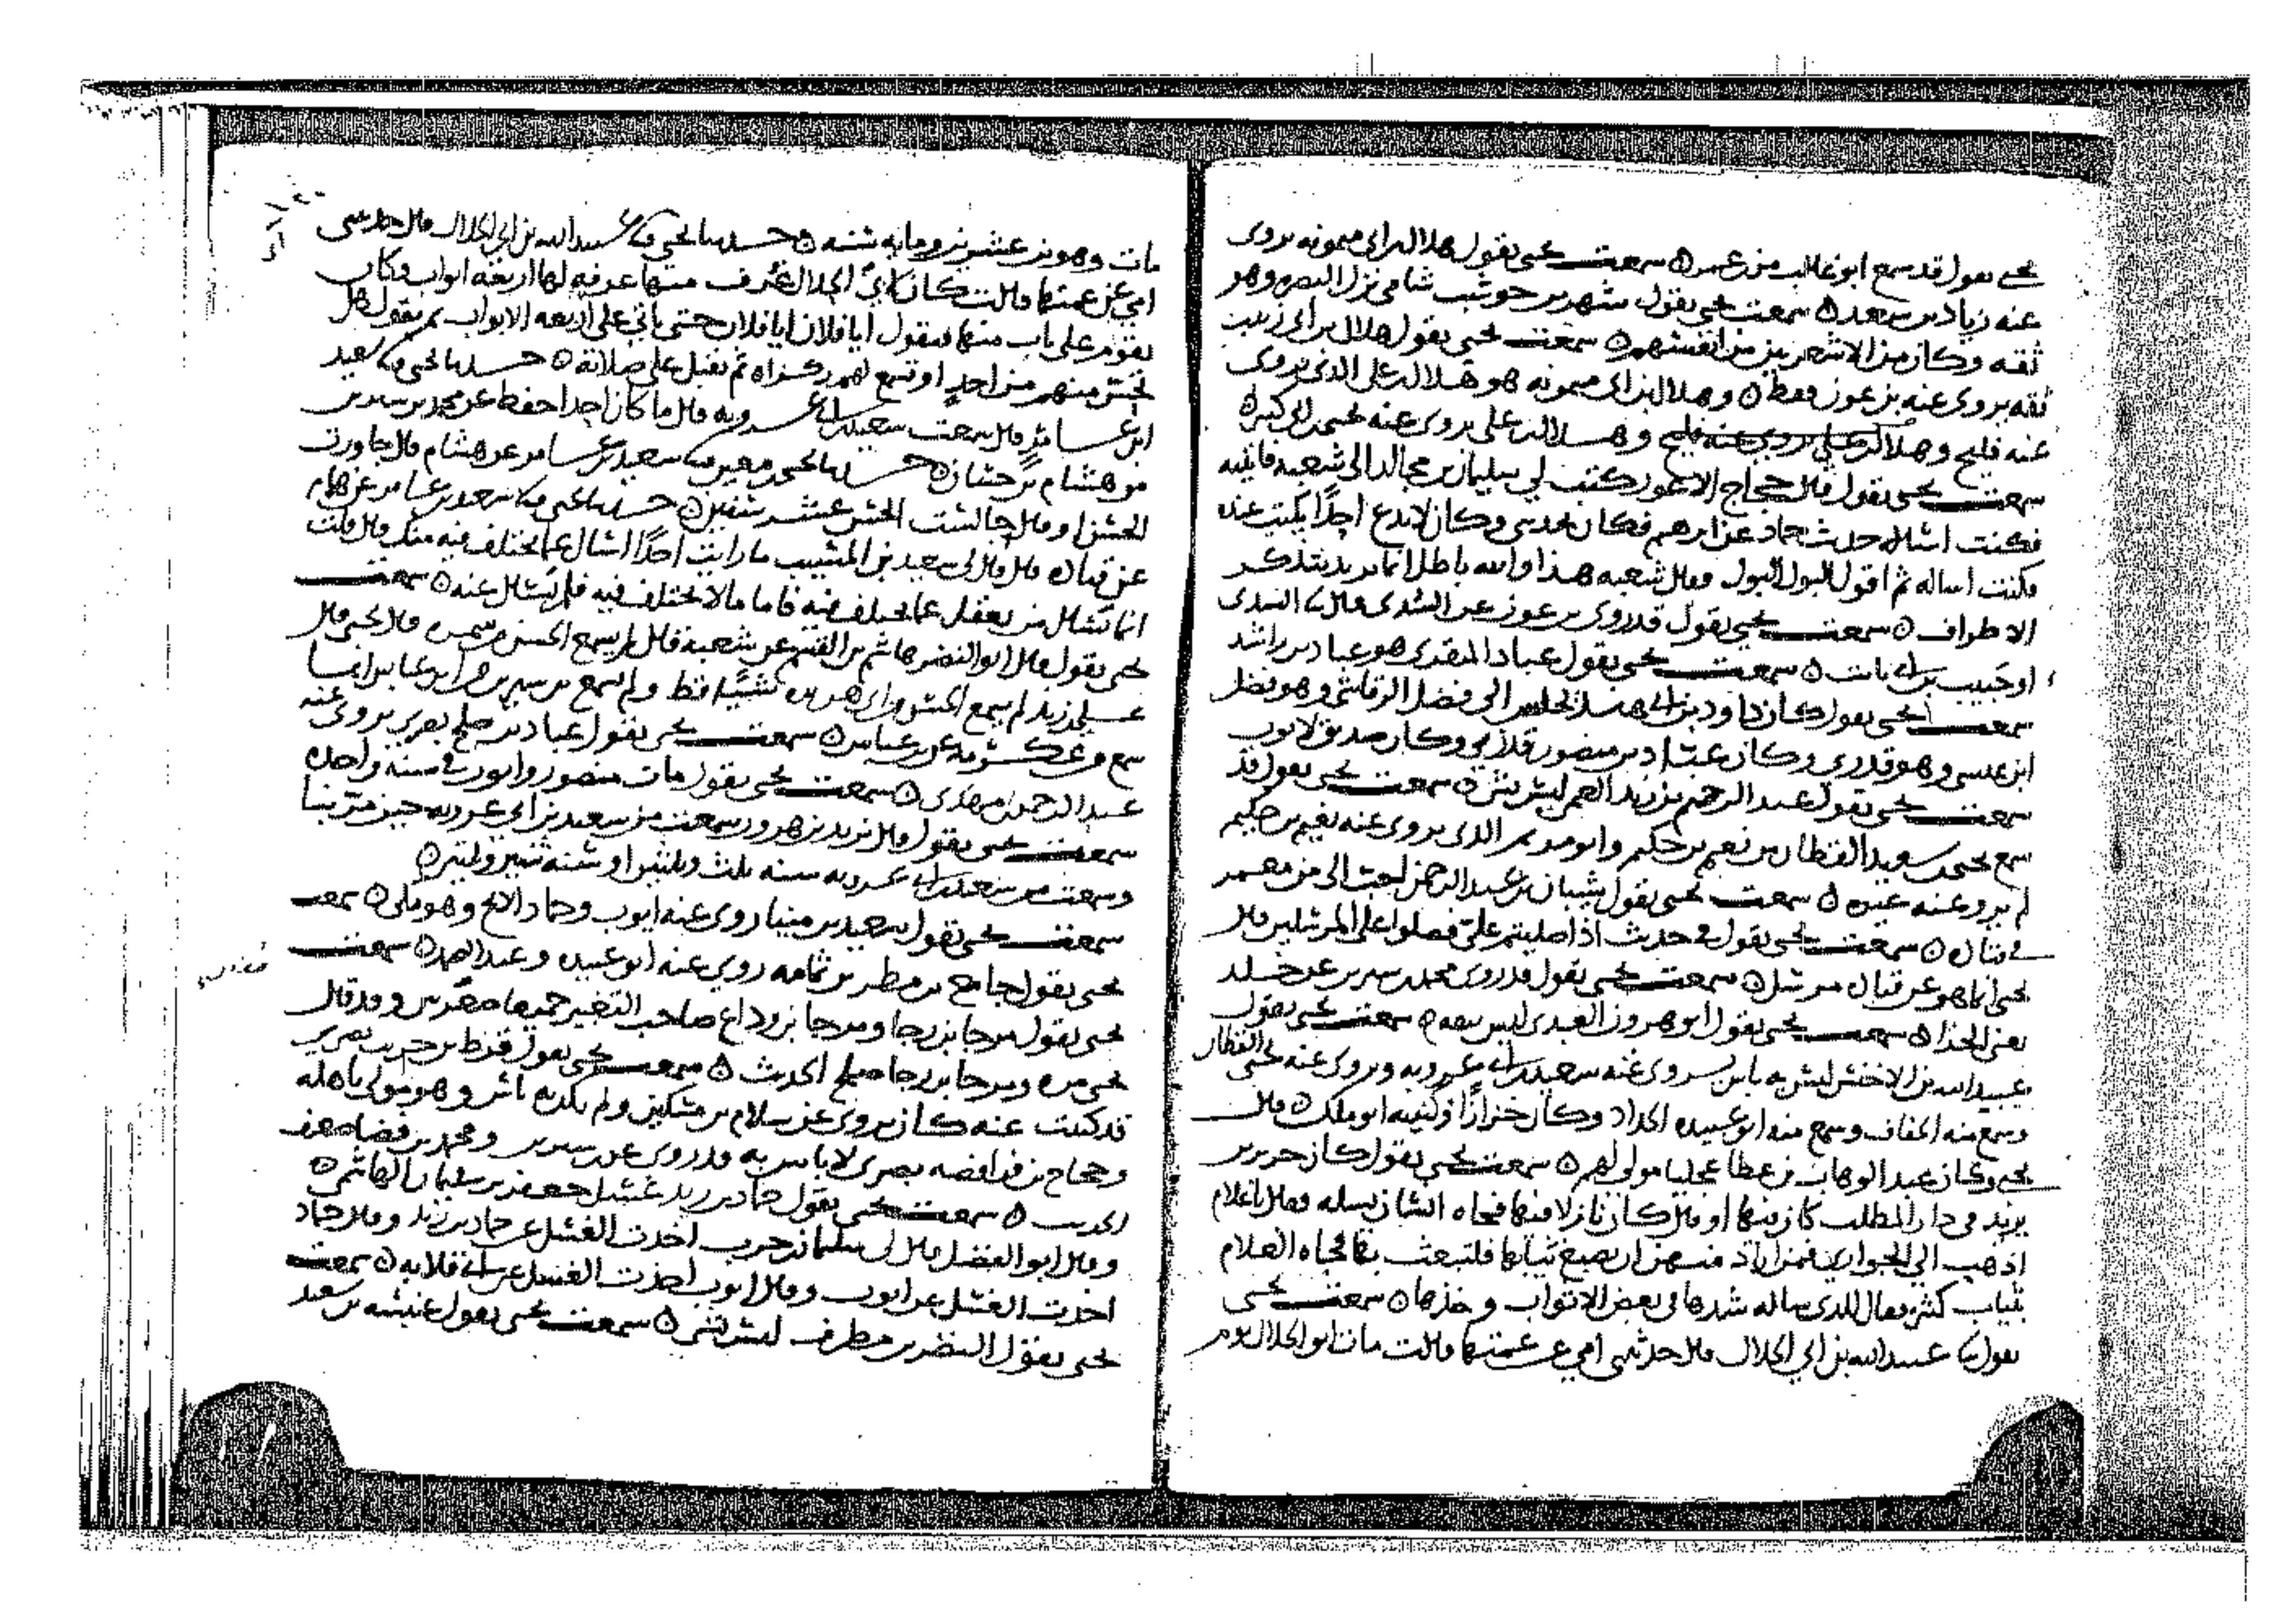 يحيى يقول قد سمع ابو غالب من عمير ه سمعت يحيى يقول هلال بن ابي ميمونه يروي
عنه زياد بن سعد ه سمعت يحيى يقول شهر بن حوشب شامي نزل البصره وهو
ثقه وكان من الاشعريين من انفسهم ه سمعت يحيى يقول هلال بن ابي زينب
ثقه يروي عنه بن عون فقط ه وهلال بن ابي ميمونه هو هلال بن علي الذي يروي
عنه فليح وهلال بن علي يروي عنه فليح وهلال بن علي يروي عنه يحيى بن ابي كثير ه
سمعت يحيى يقول قال حجاج الاعور كتب لي سليمان بن مجالد الى شعبه فاتيته
فكنت اسئله حديث حماد عن ابرهيم فكان يحدثني وكان لا يدع احدا يكتب عنده
فكنت اساله ثم اقول البول البول فقال شعبه هذا والله باطل انما يريد يتذكر
الاطراف ه سمعت يحيى يقول قد روى بن عون عن السدي قال السدي
او حبيب بن ابي ثابت ه سمعت يحيى يقول عباد المنقري هو عباد بن راشد
سمعت يحيى يقول كان داود بن ابي هند يجلس الى فضل الرقاشي وهو فضل
ابن عيسى وهو قدري وكان عباد بن منصور قدري وكان صديق لايوب
سمعت يحيى يقول عبد الرحيم بن زيد العمي ليس بشي ه سمعت يحيى يقول قد
سمع يحيى بن سعيد القطان من نعيم بن حكيم وابو مريم الذي يروي عنه نعيم بن حكيم
لم يرو عنه غيره ه سمعت يحيى يقول شيبان بن عبد الرحمن احب الي من معمر
في قتاده ه سمعت يحيى يقول في حديث اذا صليتم علي فصلوا على المرسلين قال
يحيى انما هو عن قتاده مرسل ه سمعت يحيى يقول قد روى محمد بن سيرين عن خلد
يعني الحذا ه سمعت يحيى يقول ابو هرون العبدي ليس بثقه ه سمعت يحيى يقول
عبيد الله بن الاخنس ليس به باس يروي عنه سعيد بن ابي عروبه ويروي عنه يحيى القطان
وسمع منه الخفاف وسمع منه ابو عبيده الحداد وكان خزازا وكنيته ابو ملك ه قال
يحيى وكان عبد الوهاب بن عطا عجليا مولى لهم ه سمعت يحيى يقول كان جرير بن
يزيد في دار المطلب كان فيها او قال كان نازلا فيها فجاه انسان يسله فقال يا غلام
اذهب الى الجواري فمن اراد منهن ان يصبغ ثيابها فلتبعث بها فجاه الغلام
بثياب كثير فقال للذي ساله شدها في بعض الاثواب وخذها ه سمعت يحيى
يقول عبيد الله بن ابي الجلال قال حدثتني امي عن عمتها قالت مات ابو الجلال يوم
مات وهو بن عشرين ومايه سنه ه حدثنا يحيى عبيد الله بن ابي الجلال قال حدثتني
امي عن عمتها قالت كان لابي الجلال غرف منها غرفه لها اربعه ابواب وكان
يقوم على باب منها فيقول ايا فلان ايا فلان حتى ياتي على اربعه الابواب ثم يقول هل
تحس منهم من احد او تسمع لهم ركزا ه ثم يقبل على صلاته ه حدثنا يحيى سعيد
ابن عامر قال سمعت سعيد بن ابي عروبه قال ما كان احد احفظ عن محمد بن سيرين
من هشام بن حسان ه حدثنا يحيى بن معين سعيد بن عامر عن هشام قال جاورت
الحسن او قال جالست الحسن عشر سنين ه حدثنا يحيى سعيد بن عامر عن همام
عن قتاده قال قال لي سعيد بن المسيب ما رايت احدا اسال عما يختلف فيه منك قال قلت
انما يسال من يعقل عما يختلف فيه فاما ما لا يختلف فيه فلم يسال عنه ه سمعت
يحيى يقول قال ابو النضر هاشم بن القسم عن شعبه قال لم يسمع الحسن من سمره قال يحيى قال
علي بن زيد لم يسمع الحسن من ابي هريره شيئا قط ولم يسمع بن سيرين من ابن عباس انما
سمع من عكرمه عن بن عباس ه سمعت يحيى يقول عباد بن صالح بصري يروي عنه
عبد الرحمن بن مهدي ه سمعت يحيى يقول مات منصور وايوب في سنه واحده
سمعت يحيى يقول قال يزيد بن هرون سمعت من سعيد بن ابي عروبه حين مر بنا
وسمعت من سعيد بن ابي عروبه سنه ثلث وثلثين او سنه ثنتين وثلثين ه
سمعت يحيى يقول سعيد بن مينا روى عنه ايوب وحماد الابح وهو مكي ه سمعت
يحيى يقول جامع بن مطر بن ثمامه روى عنه ابو عبيده وعبد الصمد ه سمعت
يحيى يقول مرجا بن رجا ومرجا بن وداع صاحب التغير جميعا وقد قال
يحيى مره ومرجا بن رجا صالح الحديث ه سمعت يحيى يقول قزط بن حريث بصري
قد كتبت عنه كان يروي عن سلام بن مسكين ولم يكن به باس وهو مولى باهله
وحجاج بن فرافصه بصري لا باس به وقد روى عن سيرين ومحمد بن فضاء ضعيف
الحديث ه سمعت يحيى يقول حماد بن زيد غسل جعفر بن سليمان الهاشمي ه
وقال ابو الفضل قال لي سليمان بن حرب اخذت الغسل عن حماد بن زيد وقال حماد
اخذت الغسل عن ايوب وقال ايوب اخذت الغسل عن ابي قلابه ه سمعت
يحيى يقول النضر بن مطرف ليس بشي ه سمعت يحيى يقول عنبسه بن سعيد